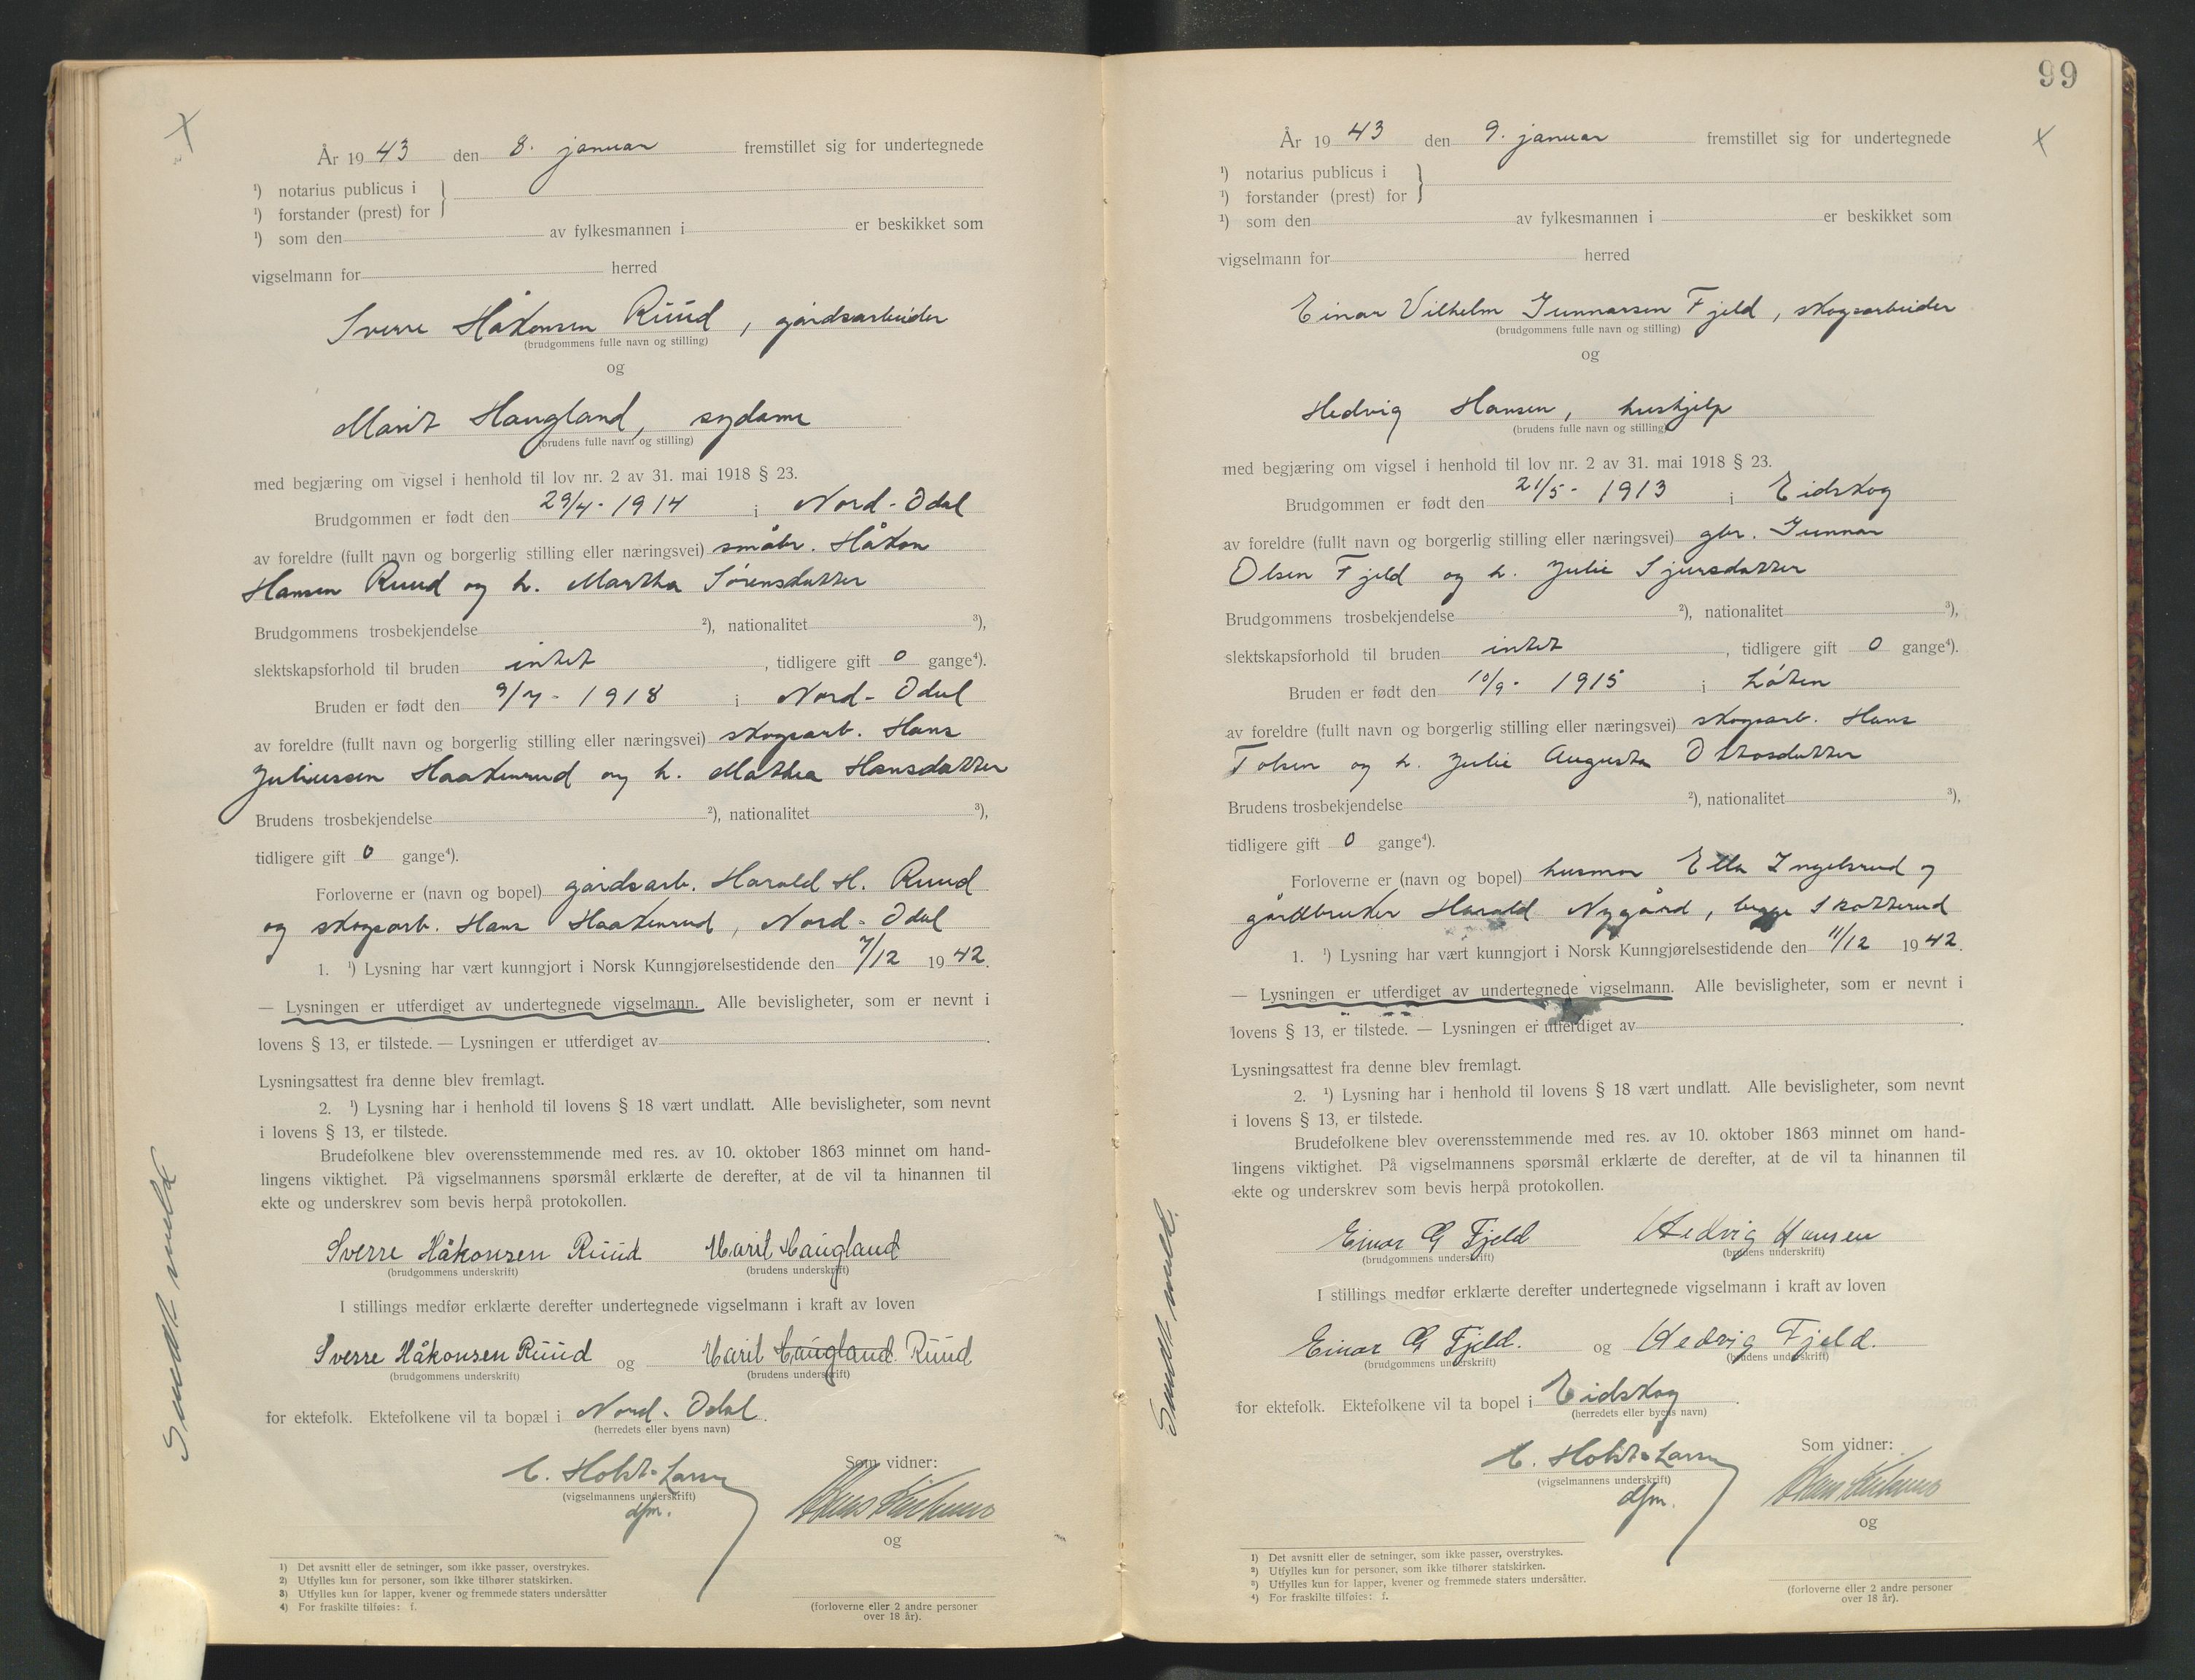 År 19 43 den 8. januar fremstillet sig for undertegnede
¹) notarius publicus i
¹) forstander (prest) for
¹) som den av fylkesmannen i er beskikket som
vigselmann for herred
Sverre Håkonsen Ruud, gårdsarbeider
(brudgommens fulle navn og stilling)
og
Marit Haugland, sydame
(brudens fulle navn og stilling)
med begjæring om vigsel i henhold til lov nr. 2 av 31. mai 1918 § 23.
Brudgommen er født den 29/4 - 1914 i Nord-Odal
av foreldre (fullt navn og borgerlig stilling eller næringsvei) småbr. Håkon
Hansen Ruud og h. Martha Sørensdatter
Brudgommens trosbekjendelse ²), nationalitet ³),
slektskapsforhold til bruden intet, tidligere gift 0 gange⁴).
Bruden er født den 9/7 - 1918 i Nord-Odal
av foreldre (fullt navn og borgerlig stilling eller næringsvei) skogsarb. Hans
Juliussen Haakenrud og h. Mathea Hansdatter
Brudens trosbekjendelse ²), nationalitet ³),
tidligere gift 0 gange⁴).
Forloverne er (navn og bopel) gårdsarb. Harald H. Ruud
og skogsarb. Hans Haakenrud, Nord-Odal
1. ¹) Lysning har vært kunngjort i Norsk Kunngjørelsestidende den 7/12 1942.
— Lysningen er utferdiget av undertegnede vigselmann. Alle bevisligheter, som er nevnt i
lovens § 13, er tilstede. — Lysningen er utferdiget av .
Lysningsattest fra denne blev fremlagt.
2. ¹) Lysning har i henhold til lovens § 18 vært undlatt. Alle bevisligheter, som nevnt
i lovens § 13, er tilstede.
Brudefolkene blev overensstemmende med res. av 10. oktober 1863 minnet om hand-
lingens viktighet. På vigselmannens spørsmål erklærte de derefter, at de vil ta hinannen til
ekte og underskrev som bevis herpå protokollen.
Sverre Håkonsen Ruud Marit Haugland
(brudgommens underskrift) (brudens underskrift)
I stillings medfør erklærte derefter undertegnede vigselmann i kraft av loven
Sverre Håkonsen Ruud og Marit Haugland Ruud
(brudgommens underskrift) (brudens underskrift)
for ektefolk. Ektefolkene vil ta bopæl i Nord-Odal.
(herredets eller byens navn)
E. Holst-Larsen Som vidner:
(vigselmannens underskrift)
dfm.
og
¹) Det avsnitt eller de setninger, som ikke passer, overstrykes.
²) Utfylles kun for personer, som ikke tilhører statskirken.
³) Utfylles kun for lapper, kvener og fremmede staters undersåtter
⁴) For fraskilte tilføies: f.
(forloverne eller 2 andre personer
over 18 år).
Sendt meld.
99
År 19 43 den 9. januar fremstillet sig for undertegnede
¹) notarius publicus i
¹) forstander (prest) for
¹) som den av fylkesmannen i er beskikket som
vigselmann for herred
Einar Vilhelm Gunnarsen Fjeld, skogsarbeider
(brudgommens fulle navn og stilling)
og
Hedvig Hansen, hushjelp
(brudens fulle navn og stilling)
med begjæring om vigsel i henhold til lov nr. 2 av 31. mai 1918 § 23.
Brudgommen er født den 21/5 - 1913 i Eidskog
av foreldre (fullt navn og borgerlig stilling eller næringsvei) gbr. Gunnar
Olsen Fjeld og h. Julie Sjursdatter
Brudgommens trosbekjendelse ²), nationalitet ³),
slektskapsforhold til bruden intet, tidligere gift 0 gange⁴).
Bruden er født den 10/9 - 1915 i Løten
av foreldre (fullt navn og borgerlig stilling eller næringsvei) skogsarb. Hans
Tolsen og h. Julie Augusta Ottosdatter
Brudens trosbekjendelse ²), nationalitet ³),
tidligere gift 0 gange⁴).
Forloverne er (navn og bopel) husmor Ella Ingelsrud og
gårdbruker Harald Nygård, begge Skotterud
1. ¹) Lysning har vært kunngjort i Norsk Kunngjørelsestidende den 11/12 1942.
— Lysningen er utferdiget av undertegnede vigselmann. Alle bevisligheter, som er nevnt i
lovens § 13, er tilstede. — Lysningen er utferdiget av .
Lysningsattest fra denne blev fremlagt.
2. ¹) Lysning har i henhold til lovens § 18 vært undlatt. Alle bevisligheter, som nevnt
i lovens § 13, er tilstede.
Brudefolkene blev overensstemmende med res. av 10. oktober 1863 minnet om hand-
lingens viktighet. På vigselmannens spørsmål erklærte de derefter, at de vil ta hinannen til
ekte og underskrev som bevis herpå protokollen.
Einar G Fjeld Hedvig Hansen
(brudgommens underskrift) (brudens underskrift)
I stillings medfør erklærte derefter undertegnede vigselmann i kraft av loven
Einar G Fjeld. og Hedvig Fjeld.
(brudgommens underskrift) (brudens underskrift)
for ektefolk. Ektefolkene vil ta bopel i Eidskog.
(herredets eller byens navn)
E. Holst-Larsen Som vidner:
(vigselmannens underskrift)
dfm.
og
¹) Det avsnitt eller de setninger, som ikke passer, overstrykes.
²) Utfylles kun for personer, som ikke tilhører statskirken.
³) Utfylles kun for lapper, kvener og fremmede staters undersåtter.
⁴) For fraskilte tilføies: f.
(forloverne eller 2 andre personer
over 18 år).
Sendt meld.